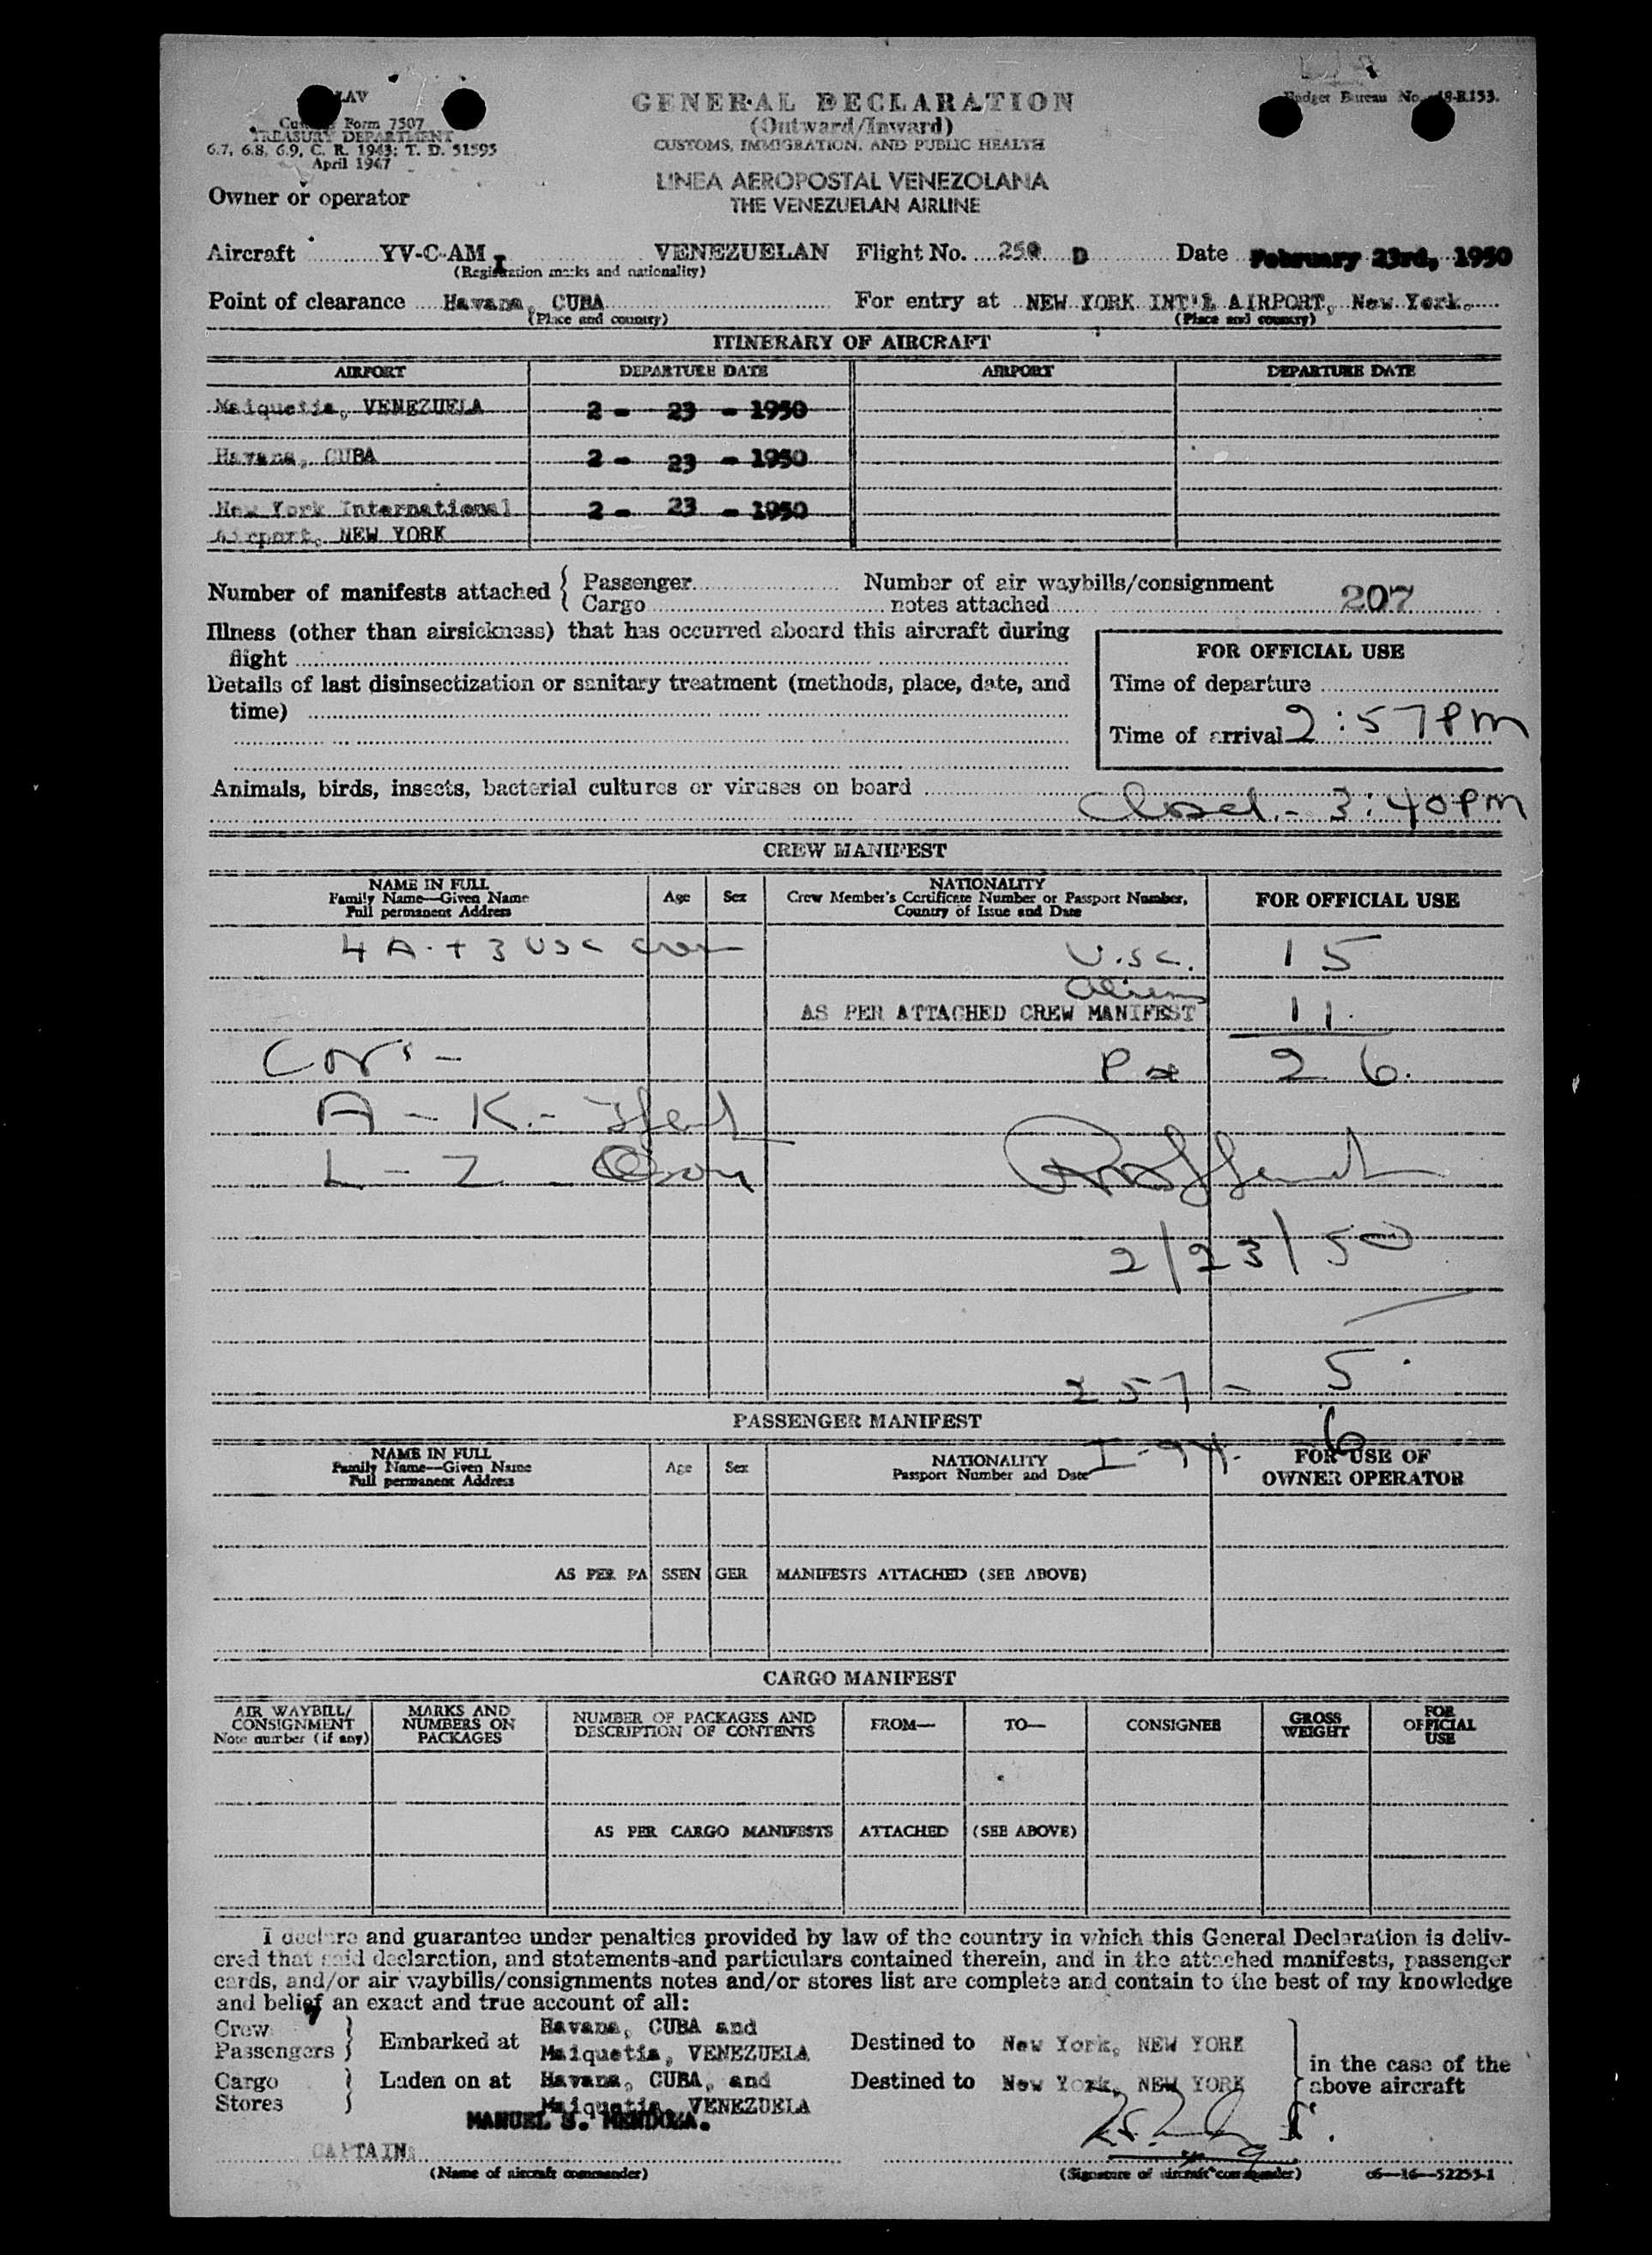 LAV
Form 7507
TREASURY DEPARTMENT
6.7, 6.8, 6.9, C. R. 1943: T. D. 51595
April 1947
Budget Bureau No. 48-R153.
GENERAL DECLARATION
(Outward/Inward)
CUSTOMS, IMMIGRATION, AND PUBLIC HEALTH
LINEA AEROPOSTAL VENEZOLANA
THE VENEZUELAN AIRLINE
Owner or operator
Aircraft YV-C-AM VENEZUELAN Flight No. 250 D Date February 23rd, 1950
(Registration marks and nationality)
Point of clearance Havana, CUBA For entry at NEW YORK INT'L AIRPORT, New York.
(Place and country) (Place and country)
ITINERARY OF AIRCRAFT
AIRPORT DEPARTURE DATE AIRPORT DEPARTURE DATE
Maiquetia, VENEZUELA 2 - 23 - 1950
Havana, CUBA 2 - 23 - 1950
New York International 2 - 23 - 1950
Airport, NEW YORK
Number of manifests attached { Passenger Number of air waybills/consignment
Cargo notes attached 207
Illness (other than airsickness) that has occurred aboard this aircraft during
flight
Details of last disinsectization or sanitary treatment (methods, place, date, and
time)
FOR OFFICIAL USE
Time of departure
Time of arrival 2:57 PM
Animals, birds, insects, bacterial cultures or viruses on board
Closed - 3:40 PM
CREW MANIFEST
NAME IN FULL
Family Name—Given Name
Full permanent Address
Age Sex
NATIONALITY
Crew Member's Certificate Number or Passport Number,
Country of Issue and Date
FOR OFFICIAL USE
4 A. + 3 USC crew U.S.C. 15
Aliens
AS PER ATTACHED CREW MANIFEST 11.
26.
A - K.-
L - Z
2/23/50
257 - 5
I-94. 6
PASSENGER MANIFEST
NAME IN FULL
Family Name—Given Name
Full permanent Address
Age Sex
NATIONALITY
Passport Number and Date
FOR USE OF
OWNER OPERATOR
AS PER PA SSEN GER MANIFESTS ATTACHED (SEE ABOVE)
CARGO MANIFEST
AIR WAYBILL/
CONSIGNMENT
Note number (if any)
MARKS AND
NUMBERS ON
PACKAGES
NUMBER OF PACKAGES AND
DESCRIPTION OF CONTENTS
FROM— TO— CONSIGNEE
GROSS
WEIGHT
FOR
OFFICIAL
USE
AS PER CARGO MANIFESTS ATTACHED (SEE ABOVE)
I declare and guarantee under penalties provided by law of the country in which this General Declaration is deliv-
ered that said declaration, and statements and particulars contained therein, and in the attached manifests, passenger
cards, and/or air waybills/consignments notes and/or stores list are complete and contain to the best of my knowledge
and belief an exact and true account of all:
Crew
Passengers } Embarked at Havana, CUBA and
Maiquetia, VENEZUELA Destined to New York, NEW YORK
Cargo
Stores } Laden on at Havana, CUBA, and
Maiquetia, VENEZUELA Destined to New York, NEW YORK
in the case of the
above aircraft
MANUEL S. MENDOZA.
CAPTAIN:
(Name of aircraft commander) (Signature of aircraft commander) c6—16—52255-1